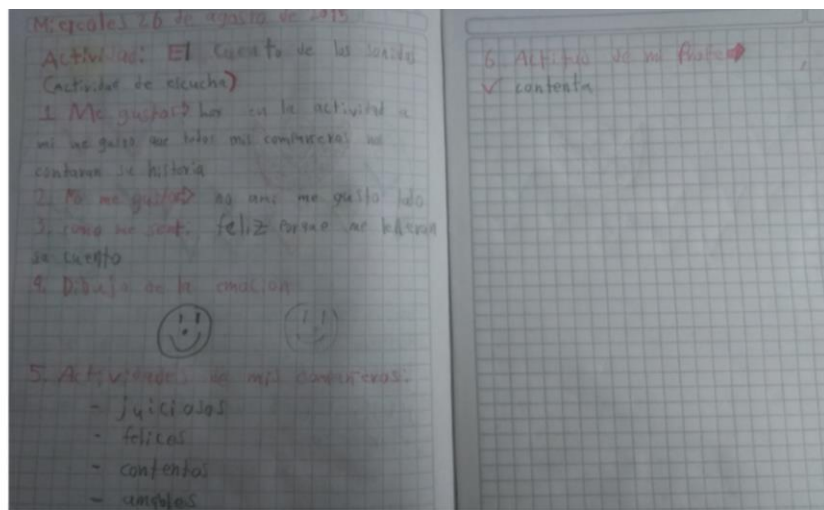 Miercoles 26 de agosto de 2015
Actividad: El cuento de los sonidos
(actividad de escucha)
1. Me gusto→ hoy en la actividad a
mi me gusto que todos mis compañeros me
contaran su historia
2. No me gusto→ no ami me gusto todo
3. como me sentí. feliz porque me leyeron
su cuento
4. Dibujo de la emoción
5. Actividades de mis compañeros:
- juiciosos
- felices
- contentos
- amables
6. Actitud de mi Profe→
✓ contenta